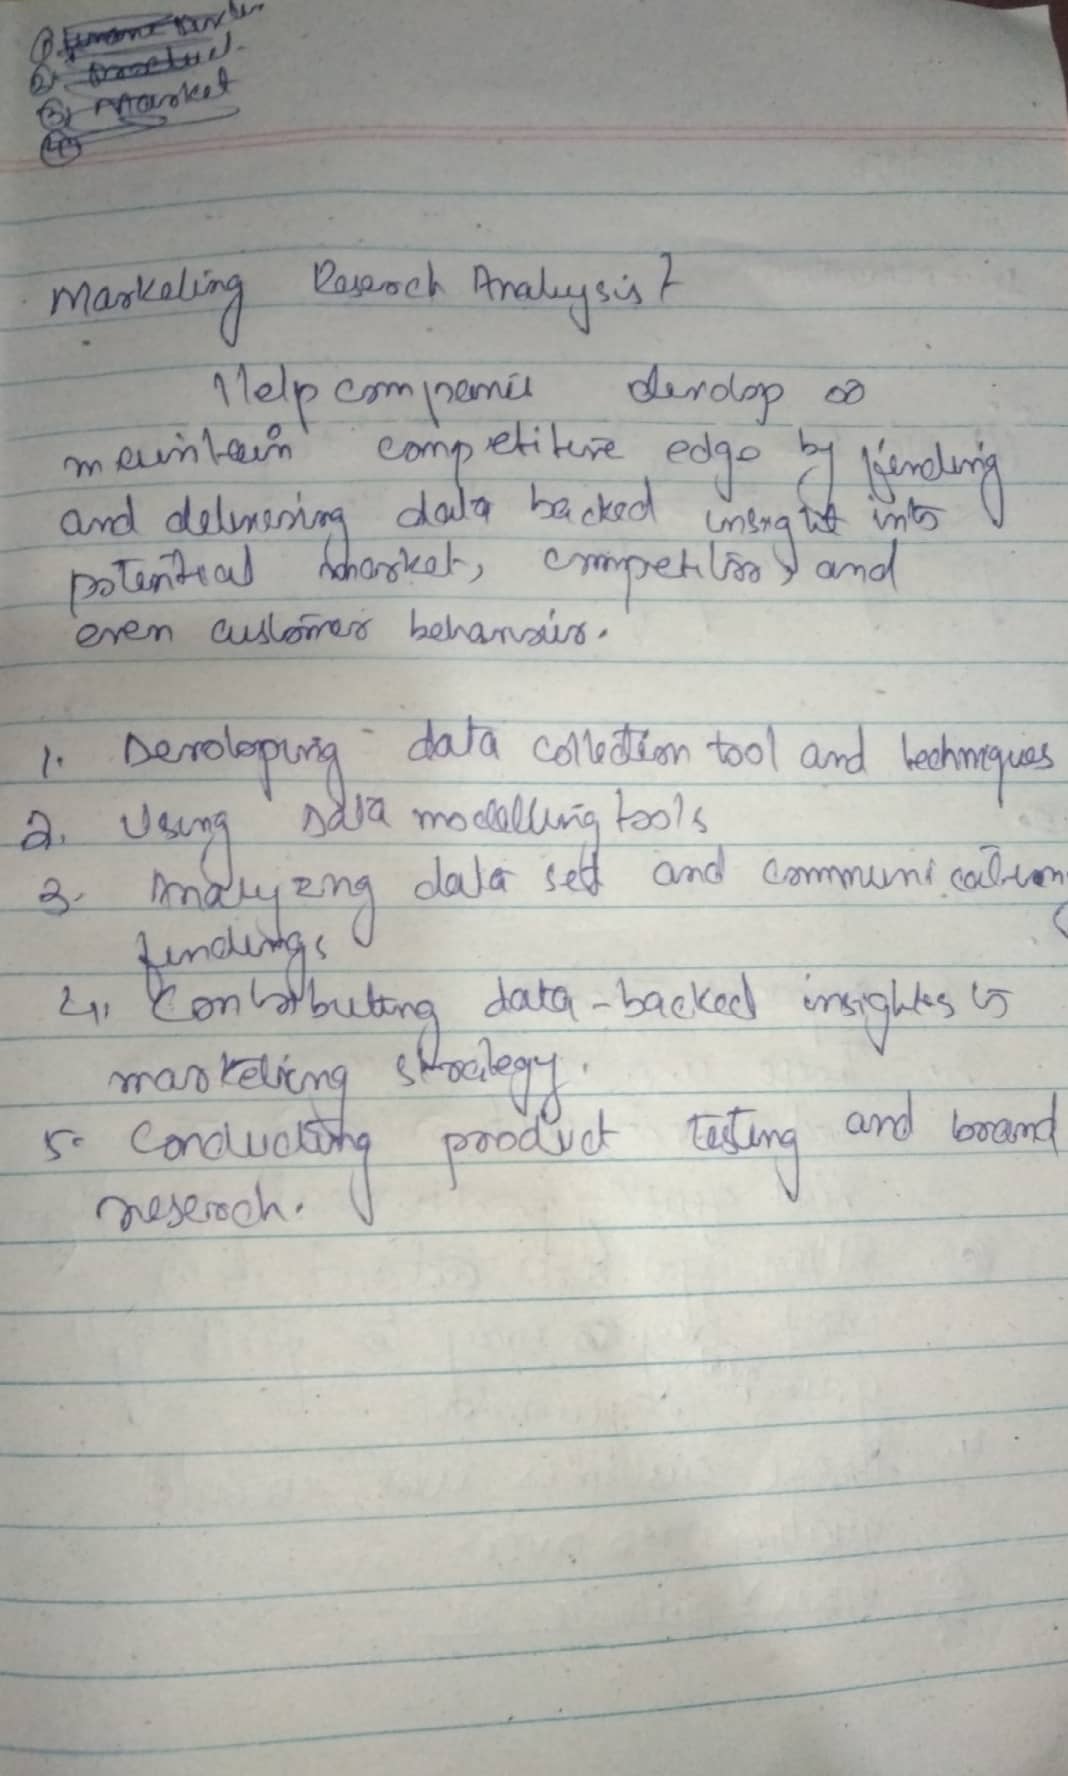 ①
②
③ Market
④
Marketing Reserch Analysis?
Help companies develop or
maintain competitive edge by finding
and delivering data backed insight into
potential market, competitor, and
even customer behaviour.
1. Developing data collection tool and techniques
2. Using Data modelling tools
3. Analyzing data set and communication
findings
4. Contributing data-backed insights to
marketing strategy.
5. Conducting product testing and brand
reserch.